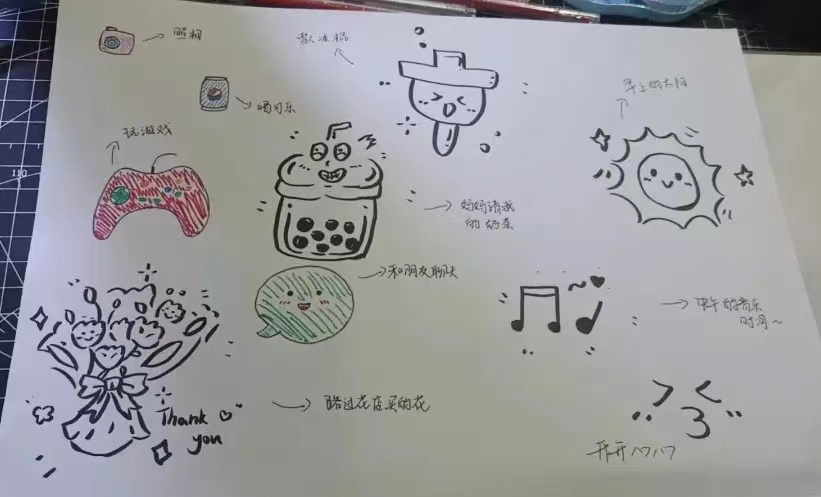 照相
雪人冰棍
喝可乐
早上的太阳
玩游戏
妈妈请我
的奶茶
和朋友聊天
中午的音乐
时间~
路过花店买的花
Thank
you
开开心心